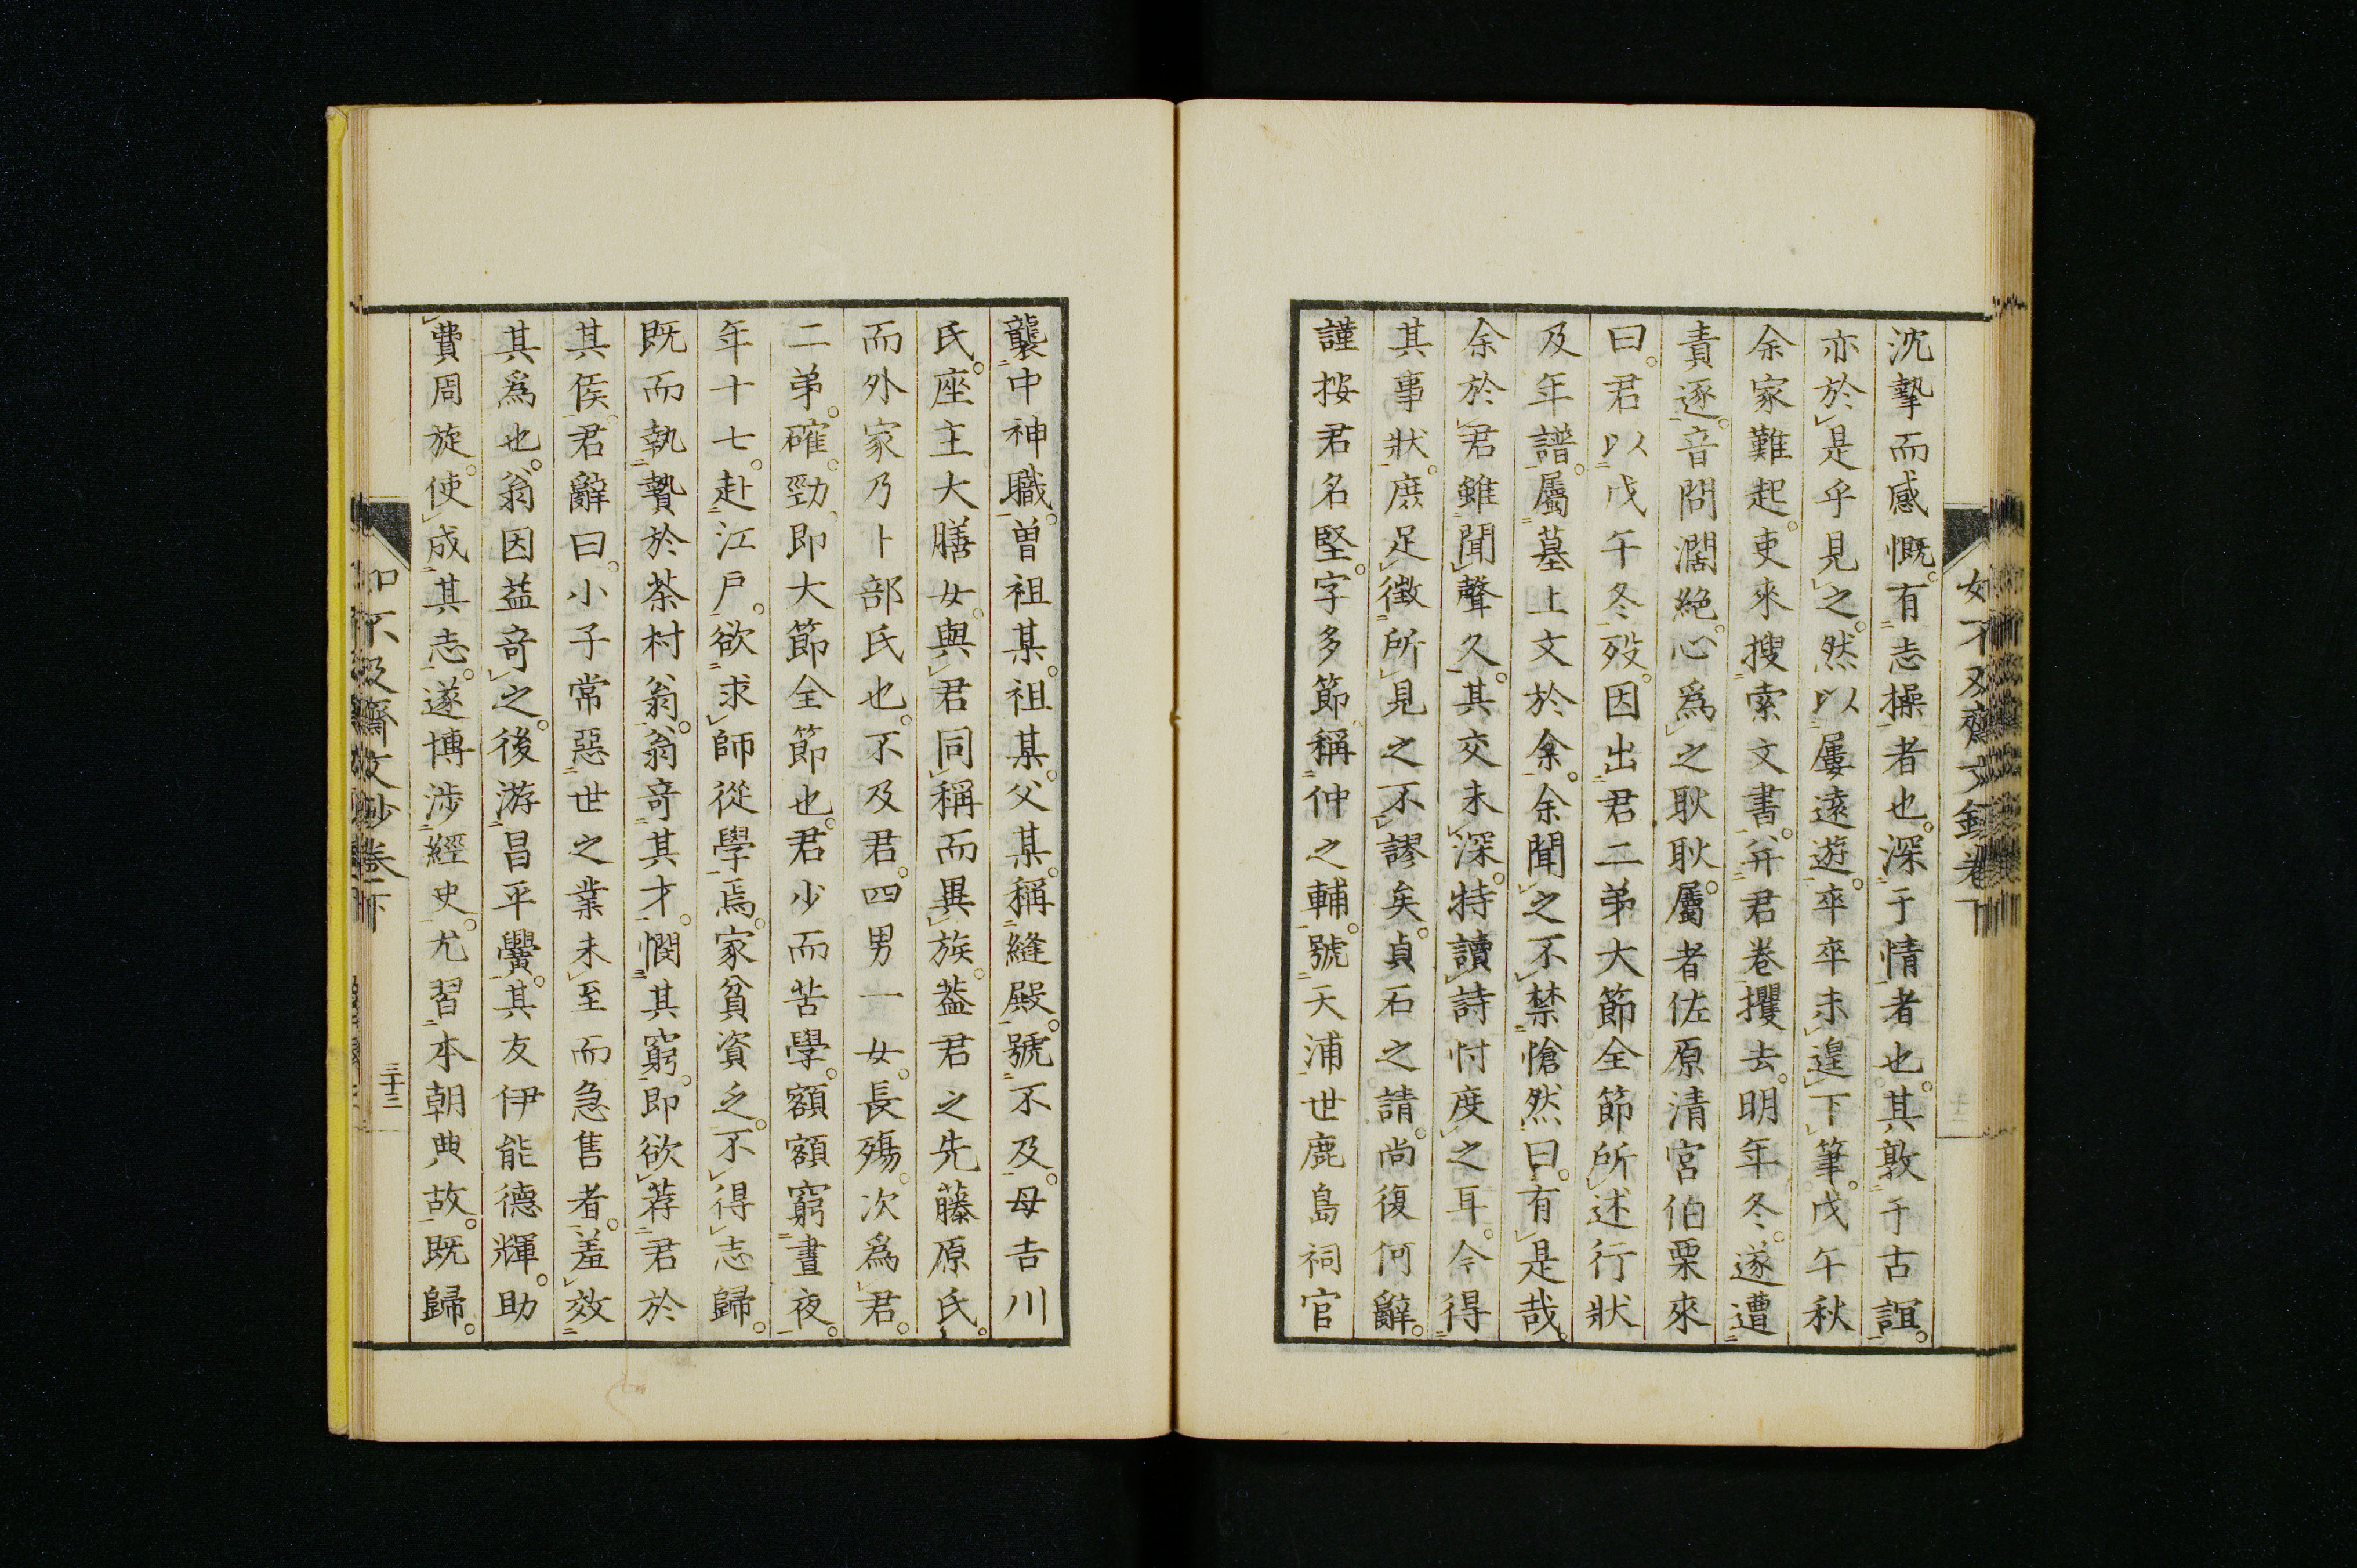 沈摯而感慨。有志操者也。深于情者也。其敦于古誼。
亦於是乎見之。然以屢遠遊。卒卒未遑下筆。戊午秋
余家難起。吏來搜索文書。并君卷攫去。明年冬。遂遭
責逐。音問濶絶。心爲之耿耿。屬者佐原清宮伯栗來
曰。君以戊午冬歿。因出君二弟大節全節所述行狀
及年譜。屬墓上文於余。余聞之不禁愴然曰。有是哉。
余於君雖聞聲久。其交未深。特讀詩忖度之耳。今得
其事狀。庶足徵所見之不謬矣。貞石之請。尚復何辭。
謹按君名堅。字多節。稱仲之輔。號天浦世鹿島祠官
襲中神職。曽祖某。祖某。父某。稱縫殿。號不及。母吉川
氏。座主大膳女。與君同稱而異族。葢君之先藤原氏。
而外家乃卜部氏也。不及君。四男一女。長殤。次爲君。
二弟。確。勁。即大節全節也。君少而苦學。額額窮晝夜。
年十七。赴江戸。欲求師從學焉。家貧資乏。不得志歸。
既而執贄於茶村翁。翁奇其才。憫其窮。即欲荐君於
其侯。君辭曰。小子常惡世之業未至而急售者。羞效
其爲也。翁因益奇之。後游昌平黌。其友伊能德輝。助
費周旋。使成其志。遂博涉經史。尤習本朝典故。既歸。
如不及齋文鈔卷下
三十三